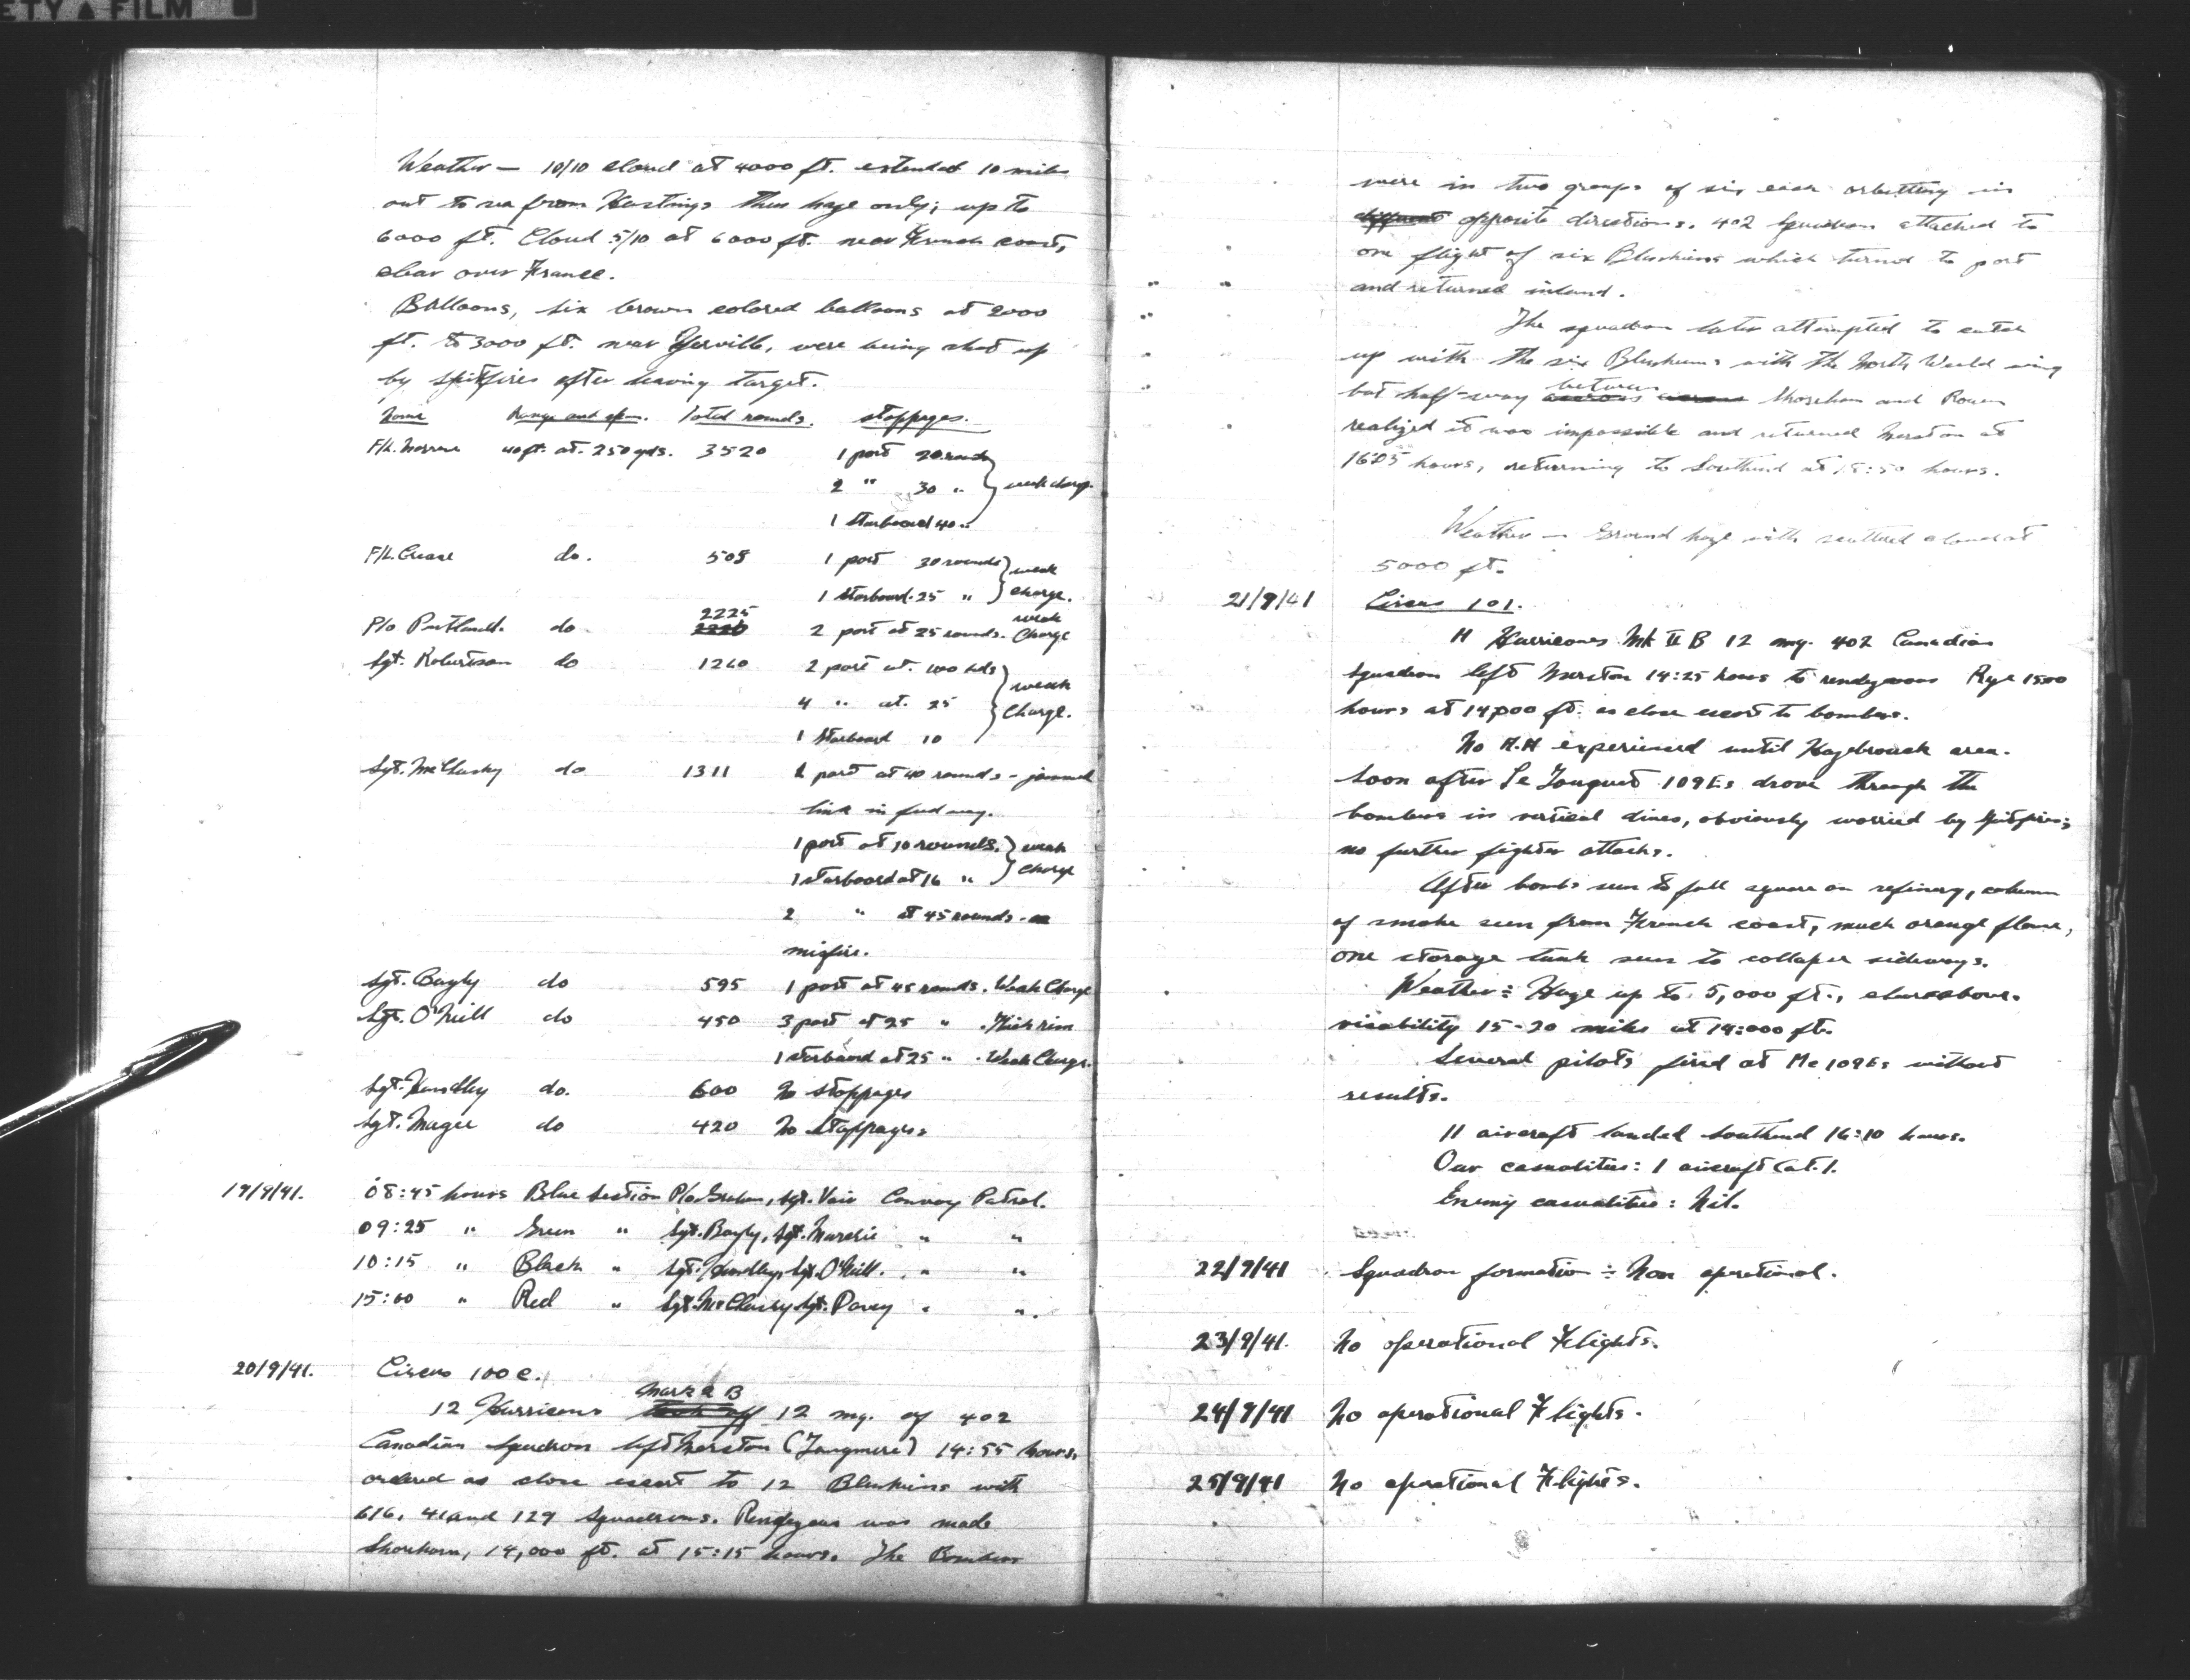 ETY ▲ FILM
Weather — 10/10 cloud at 4000 ft. extended 10 miles
out to sea from Hastings then haze only; up to
6000 ft. Cloud 5/10 at 6000 ft. near French coast,
clear over France.
Balloons, six brown colored balloons at 2000
ft. to 3000 ft. near Yerville, were being shot up
by Spitfires after leaving target.
Name Range and span. Total rounds. Stoppages.
F/L. Morrow 40 ft. at. 250 yds. 3520 1 port 20 rounds
2 " 30 " weak charge.
1 Starboard 40 "
F/L. Crease do. 505 1 port 30 rounds weak
1 Starboard. 25 " charge.
2225 weak
P/O Pentland. do 2 port at 25 rounds. Charge
Sgt. Robertson do 1260 2 port at. 100 rds
4 " at. 25 weak Charge.
1 Starboard 10
Sgt. McClusky do 1311 port at 40 rounds - jammed
link in feed way.
1 port at 10 rounds. weak
1 starboard at 16 " charge
2 " at 45 rounds -
misfire.
Sgt. Bayly do 595 1 port at 45 rounds. Weak Charge
Sgt. O'Neill do 450 3 port at 25 " . Thick rim
1 starboard at 25 " . Weak Charge.
Sgt. Handley do. 600 No stoppages
Sgt. Magee do 420 No Stoppages
19/9/41. 08:45 hours Blue Section P/O Graham, Sgt. Vair Convoy Patrol.
09:25 " Green " Sgt. Bayly, Sgt. " "
10:15 " Black " Sgt. Handley, Sgt. O'Neill. " "
15:00 " Red " Sgt. McClusky Sgt. Pavey " ".
20/9/41. Circus 100 C.
Mark 2 B
12 Hurricanes took off 12 mg. of 402
Canadian Squadron left Merston (Tangmere) 14:55 hours,
ordered as close escort to 12 Blenheims with
616, 41 and 129 Squadrons. Rendezvous was made
Shoreham, 14,000 ft. at 15:15 hours. The Bombers
were in two groups of six each orbitting in
different opposite directions. 402 Squadron attached to
one flight of six Blenheims which turned to port
and returned inland.
The squadron later attempted to catch
up with the six Blenheims with the North Weald wing
between
but half-way across Shoreham and Rouen
realized it was impossible and returned Merston at
1605 hours, returning to Southend at 18:50 hours.
Weather — Ground haze with scattered cloud at
5000 ft.
21/9/41 Circus 101.
11 Hurricanes Mk II B 12 mg. 402 Canadian
Squadron left Merston 14:25 hours to rendezvous Rye 1500
hours at 14,000 ft. as close escort to bombers.
No A.A experienced until Hazebrouck area.
Soon after Le Touquet 109Es drove through the
bombers in vertical dives, obviously worried by Spitfires;
no further fighter attacks.
After bombs seen to fall square on refinery, column
of smoke seen from French coast, much orange flame,
one storage tank seen to collapse sideways.
Weather: Haze up to 5,000 ft., clear above.
visability 15-20 miles at 14:000 ft.
Several pilots fired at Me 109Es without
results.
11 aircraft landed Southend 16:10 hours.
Our casualities: 1 aircraft Cat. 1.
Enemy casualities: Nil.
22/9/41 Squadron formation: Non operational.
23/9/41. No operational Flights.
24/9/41 No operational Flights.
25/9/41 No operational Flights.